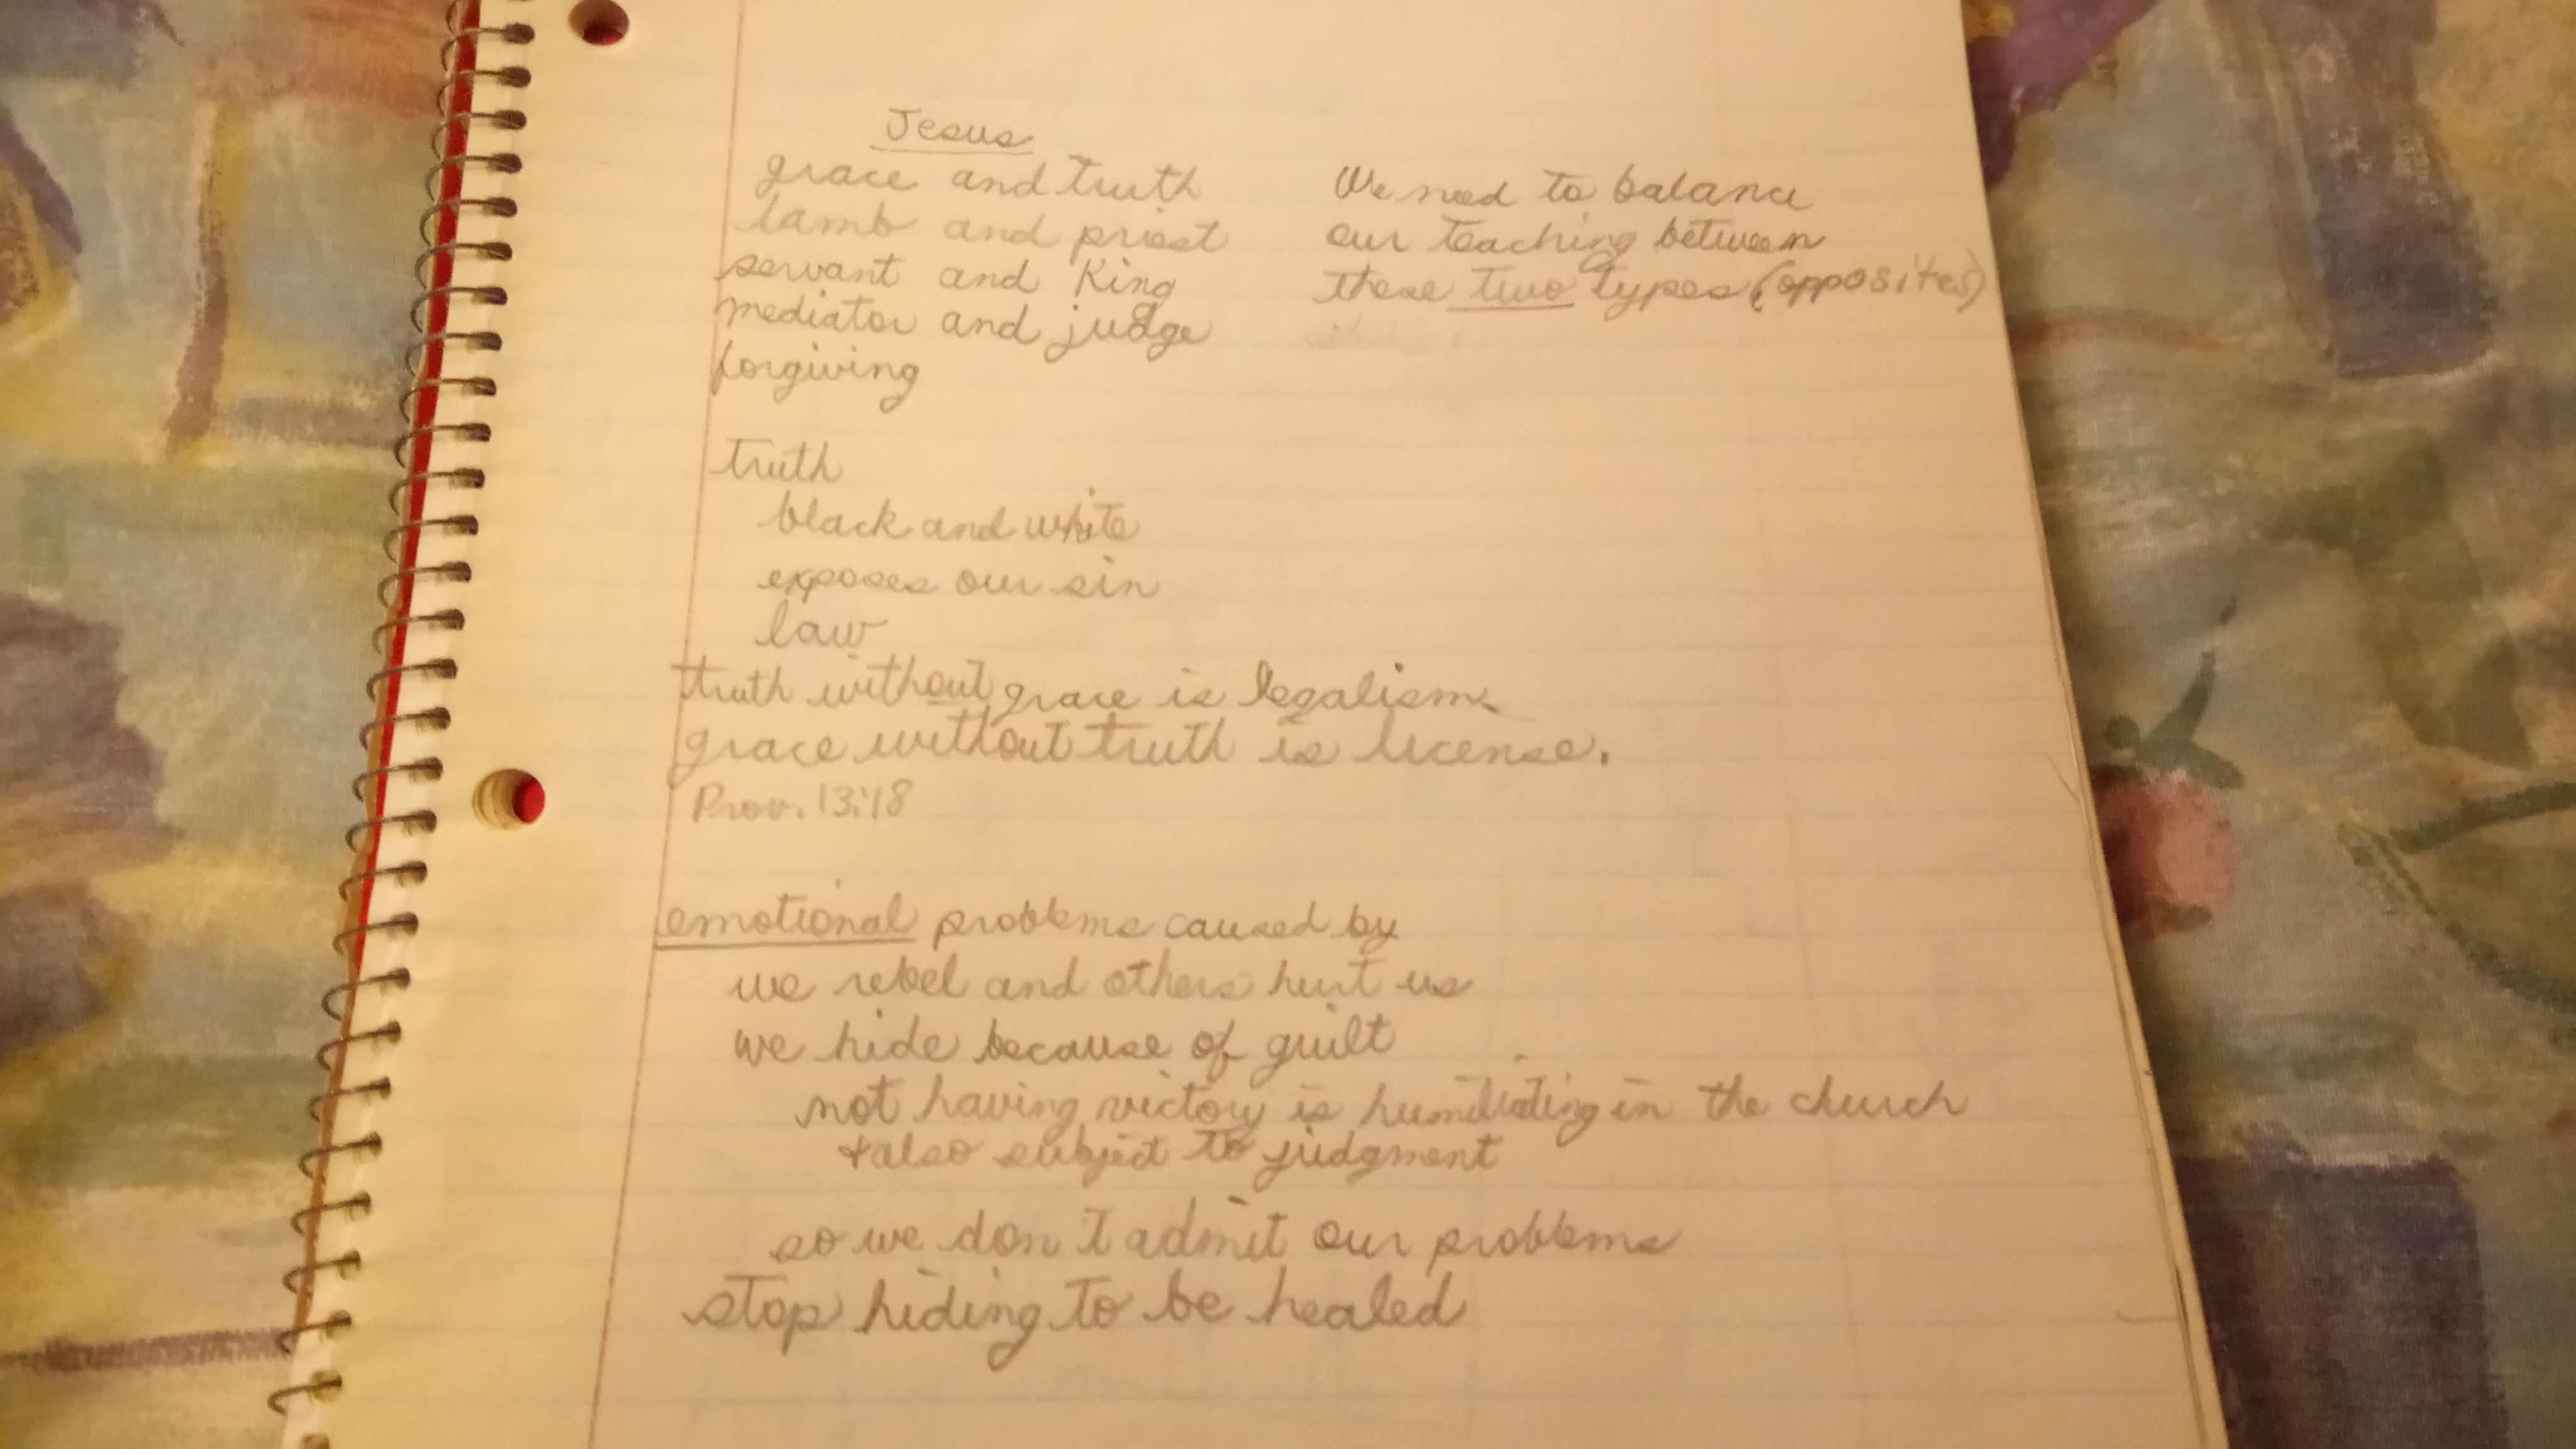 Jesus
grace and truth
lamb and priest
servant and King
mediator and judge
forgiving
We need to balance
our teaching between
these two types (opposites)
truth
black and white
exposes our sin
law
truth without grace is legalism.
grace without truth is license.
Prov. 13:18
emotional problems caused by
we rebel and others hurt us
we hide because of guilt
not having victory is humiliating in the church
+ also subject to judgment
so we don't admit our problems
stop hiding to be healed